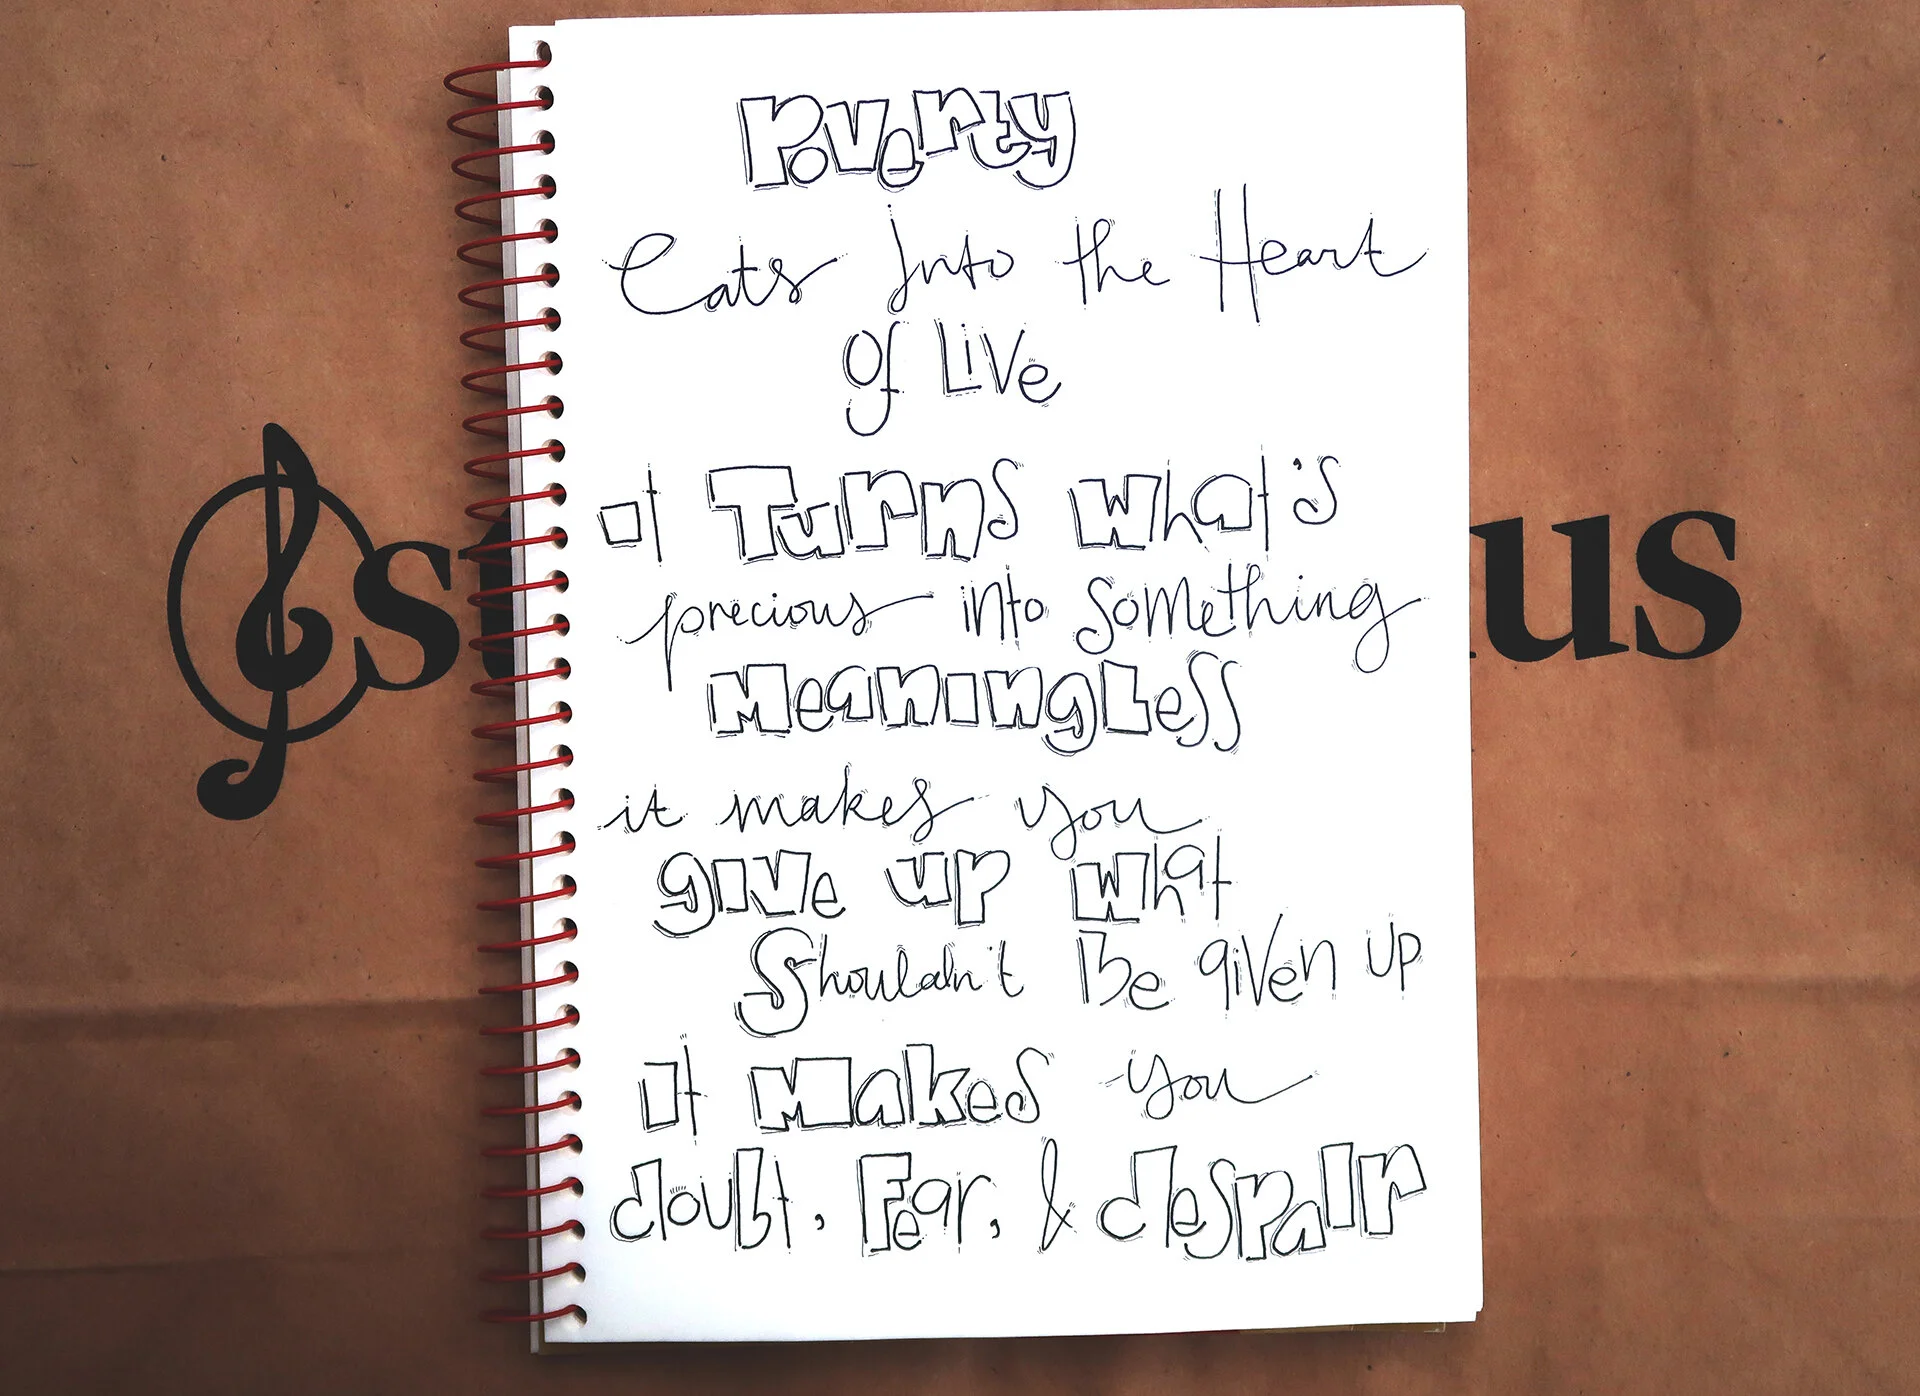 Poverty
Eats Into the Heart
of Live
it Turns what's
precious into something
Meaningless
it makes you
give up what
Shouldn't Be given up
It Makes you
doubt, Fear, & despair
st
us